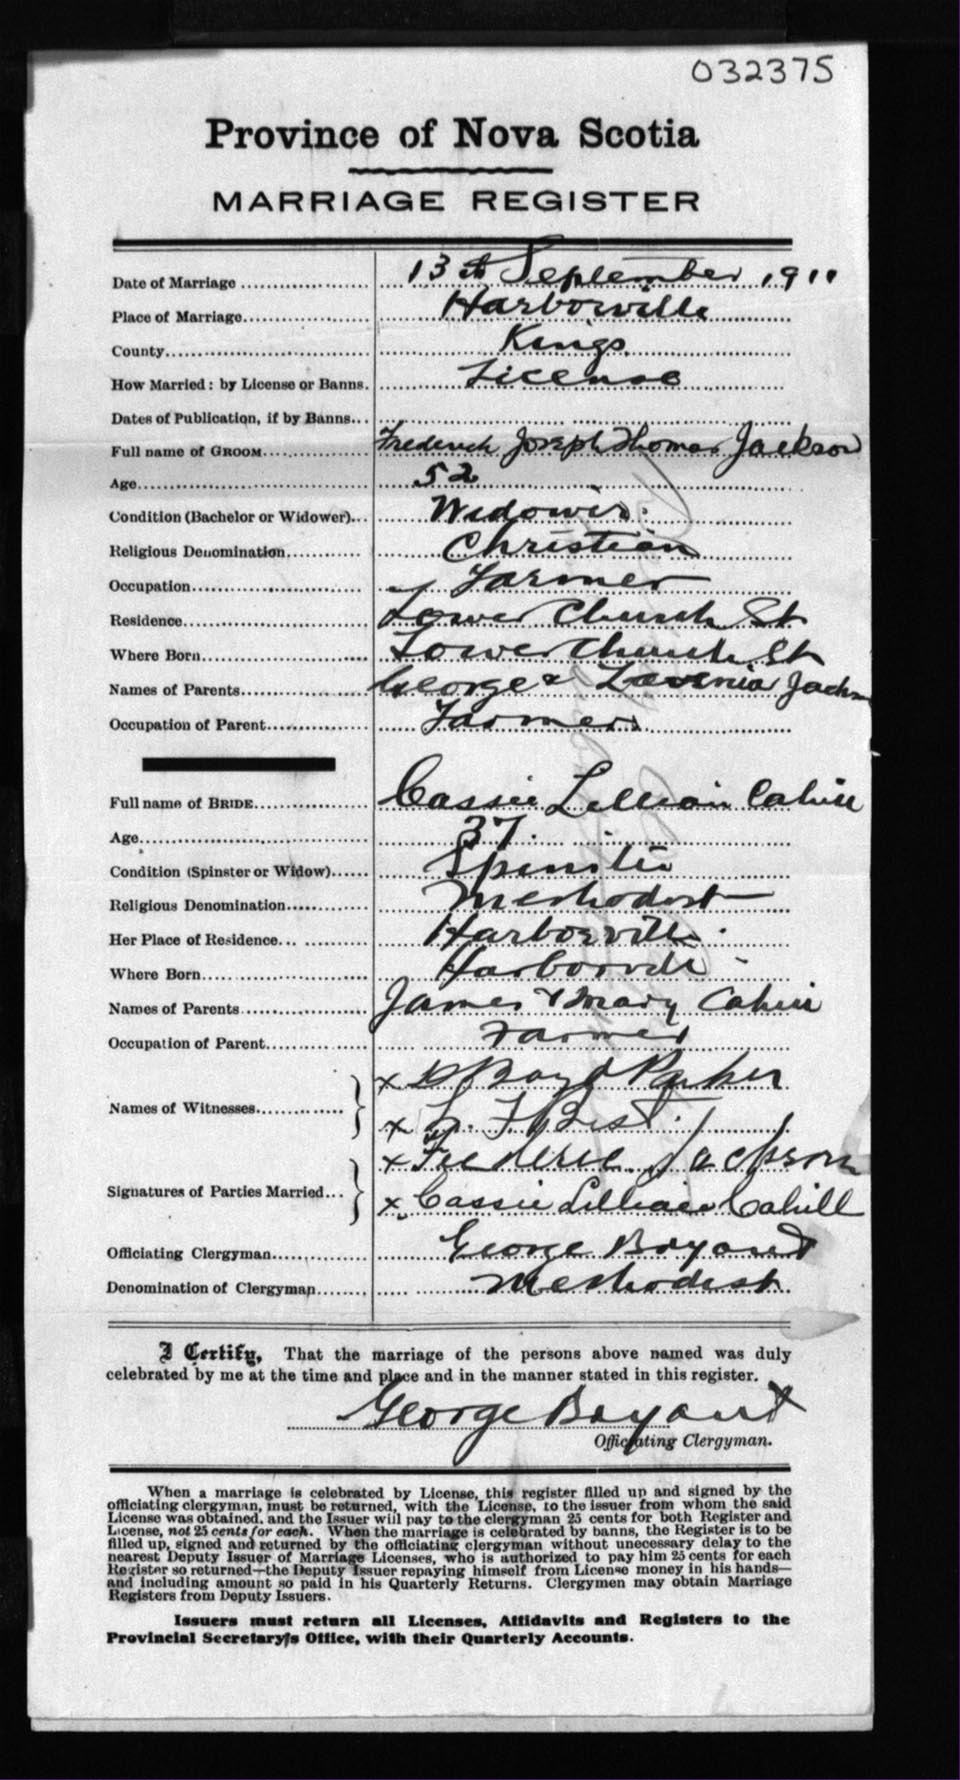 032375
Province of Nova Scotia
MARRIAGE REGISTER
Date of Marriage 13th September 1911
Place of Marriage Harborville
County Kings
How Married: by License or Banns. License
Dates of Publication, if by Banns
Full name of GROOM Frederick Joseph Thomas Jackson
Age 52
Condition (Bachelor or Widower) Widower
Religious Denomination Christian
Occupation Farmer
Residence Lower Church St
Where Born Lower Church St
Names of Parents George & Lavinia Jackson
Occupation of Parent Farmer
Full name of BRIDE Cassie Lillian Cahill
Age 37.
Condition (Spinster or Widow) Spinster
Religious Denomination Methodist
Her Place of Residence Harborville
Where Born Harborville
Names of Parents James & Mary Cahill
Occupation of Parent Farmer
x Boyd Parker
Names of Witnesses
x F Best.
x Frederic Jackson
Signatures of Parties Married
x Cassie Lillian Cahill
Officiating Clergyman George Bryant
Denomination of Clergyman Methodist
I Certify, That the marriage of the persons above named was duly
celebrated by me at the time and place and in the manner stated in this register.
George Bryant
Officiating Clergyman.
When a marriage is celebrated by License, this register filled up and signed by the
officiating clergyman, must be returned, with the License, to the issuer from whom the said
License was obtained, and the Issuer will pay to the clergyman 25 cents for both Register and
License, not 25 cents for each. When the marriage is celebrated by banns, the Register is to be
filled up, signed and returned by the officiating clergyman without unnecessary delay to the
nearest Deputy Issuer of Marriage Licenses, who is authorized to pay him 25 cents for each
Register so returned—the Deputy Issuer repaying himself from License money in his hands—
and including amount so paid in his Quarterly Returns. Clergymen may obtain Marriage
Registers from Deputy Issuers.
Issuers must return all Licenses, Affidavits and Registers to the
Provincial Secretary's Office, with their Quarterly Accounts.